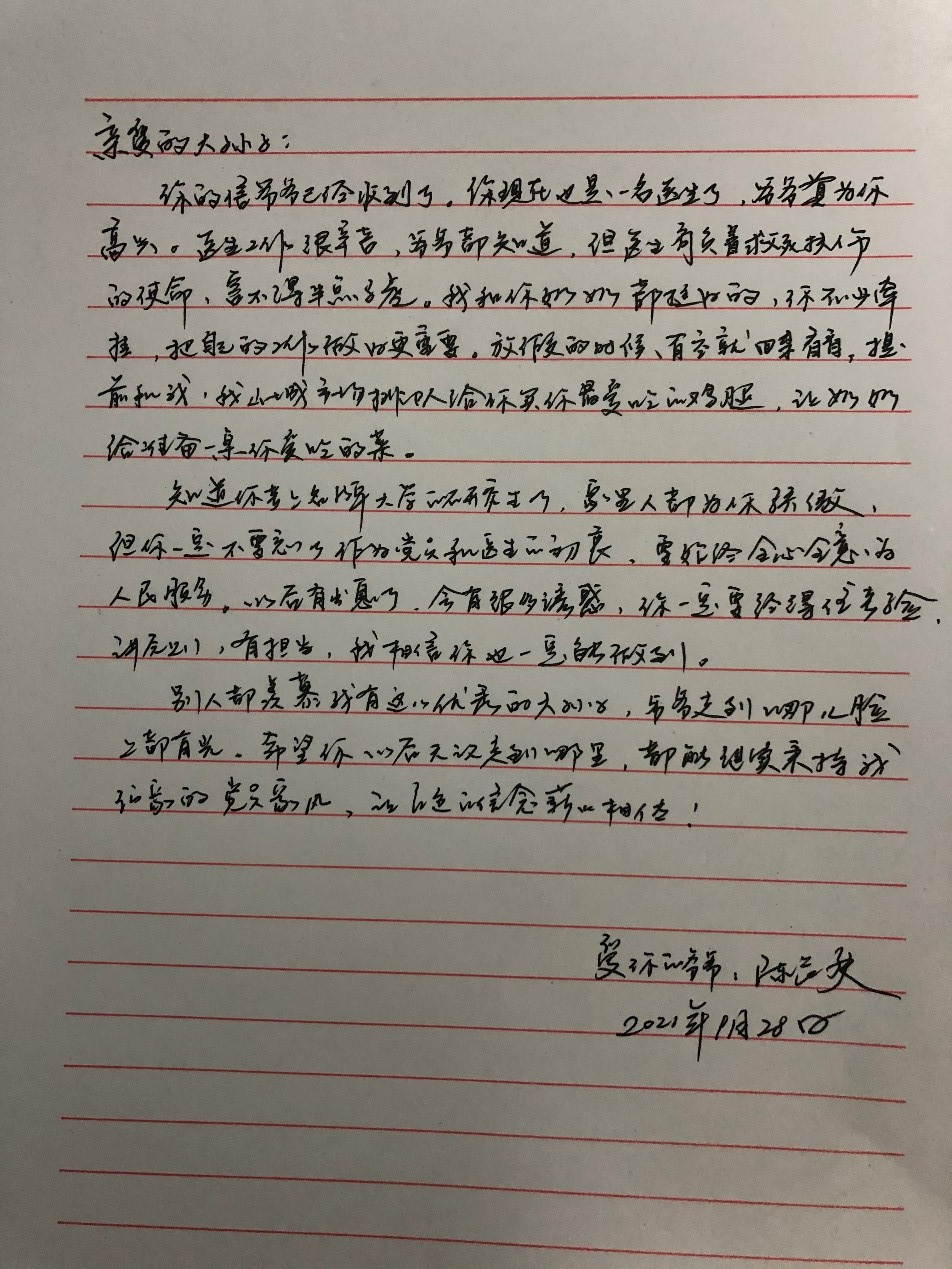 亲爱的大孙子：
你的信爷爷已经收到了。你现在也是一名医生了，爷爷真为你
高兴。医生工作很辛苦，爷爷都知道，但医生肩负着救死扶伤
的使命，容不得半点马虎。我和你奶奶都挺好的，你不必牵
挂，把自己的工作做好更重要。放假的时候、有空就回来看看，提
前和我，我去城市场排队给你买你最爱吃的鸡腿，让奶奶
给准备一桌你爱吃的菜。
知道你考上知牌大学的研究生了，家里人都为你骄傲，
但你一定不要忘了作为党员和医生的初衷，要始终全心全意为
人民服务。以后有出息了，会有很多诱惑，你一定要给得住考验，
讲原则，有担当，我相信你也一定能做到。
别人都羡慕我有这么优秀的大孙子，爷爷走到哪儿脸
上都有光。希望你以后无论走到哪里，都能继续秉持我
们家的党员家风，让红色的信念薪火相传！
爱你的爷爷：陈
2021年9月28日